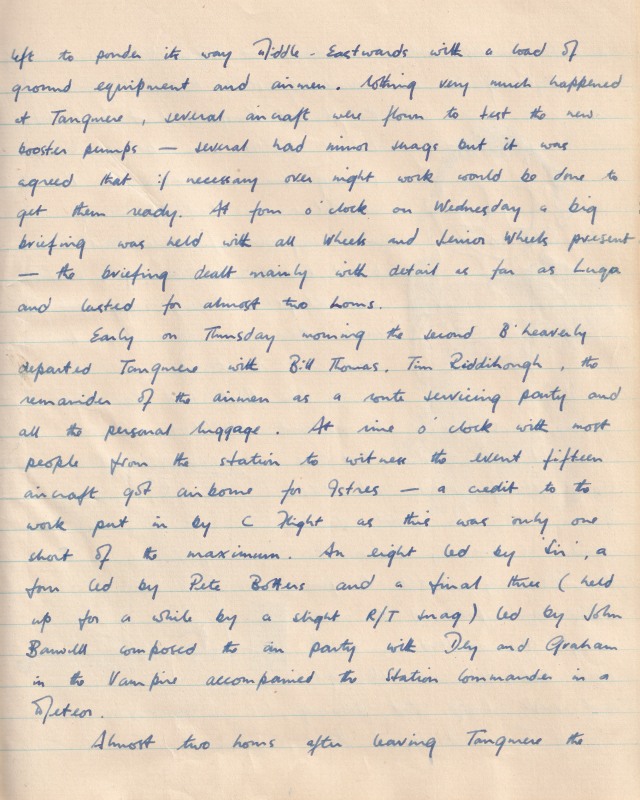 left to ponder its way Middle-Eastwards with a load of
ground equipment and airmen. Nothing very much happened
at Tangmere, several aircraft were flown to test the new
booster pumps — several had minor snags but it was
agreed that if necessary over night work would be done to
get them ready. At four o'clock on Wednesday a big
briefing was held with all Wheels and Senior Wheels present
— the briefing dealt mainly with detail as far as Luqa
and lasted for almost two hours.
Early on Thursday morning the second B'heaverly
departed Tangmere with Bill Thomas, Tim Riddihough, the
remainder of the airmen as a route servicing party and
all the personal luggage. At nine o'clock with most
people from the station to witness the event fifteen
aircraft got airborne for Istres — a credit to the
work put in by C Flight as this was only one
short of the maximum. An eight led by 'Sir', a
four led by Pete Botters and a final three (held
up for a while by a slight R/T snag) led by John
composed the air party with and Graham
in the Vampire accompanied the Station commander in a
Meteor.
Almost two hours after leaving Tangmere the